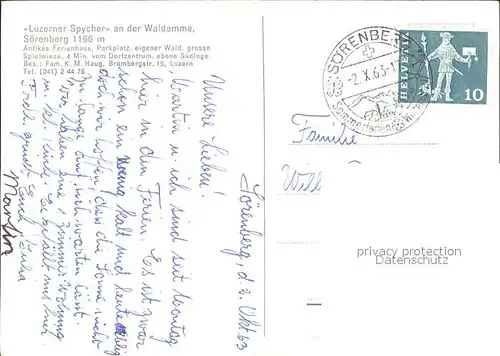 «Luzerner Spycher» an der Waldamme,
Sörenberg 1166 m
Antikes Ferienhaus, Parkplatz, eigener Wald, grosse
Spielwiese, 4 Min. vom Dorfzentrum, ebene Südlage.
Bes.: Fam. K. M. Haug, Brambergstr. 15, Luzern
Tel. (041) 2 44 76
Sörenberg, d. 2. Okt 63
Unsere Lieben!
Martin u. ich sind seit Montag
hier in den Ferien. Es ist zwar
schon ein wenig kalt und
doch wir hoffen, dass die Sonne nicht
zu lange auf sich warten lässt.
Wir haben eine 1 Zimmer Wohnung
m. kl. Küche. Es gefällt uns hier.
Fredl. grüsst Euch
Martin
SÖRENBERG
-2.X.63-1
HELVETIA
10
Familie
Will
privacy protection
Datenschutz